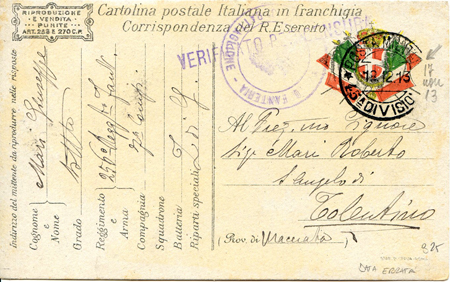 RIPRODUZIONE
E VENDITA
PUNITE
ART. 285 E 270 C.P.
Cartolina postale Italiana in franchigia
Corrispondenza del R. Esercito
VERIF
POSTA MILITARE
12.12.15
DIVISIONE
FANTERIA
17
13
Indirizzo del mittente da riprodurre nelle risposte
Cognome e Nome Mari Giuseppe
Grado
Reggimento e Arma 256° Regg. Fant.
Compagnia 7a Comp.
Squadrone
Batteria
Riparti speciali
Al Preg.mo Signore
Sig. Mari Roberto
S. Angelo di
Tolentino
(Prov. di Macerata)
825
DATA ERRATA